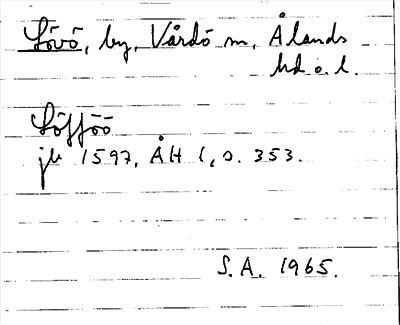 Lövö, by, Vårdö sn, Ålands
hd o. l.
Löfföö
jb 1597, ÅH 1, s. 353.
S. A. 1965.